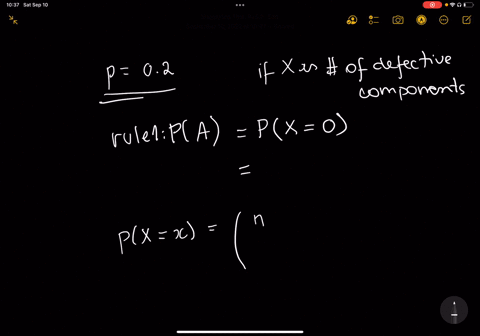 10:37 Sat Sep 10
p = 0.2
if X is # of defective
components
rule1: P(A) = P(X = 0)
=
P(X = x) = ( n